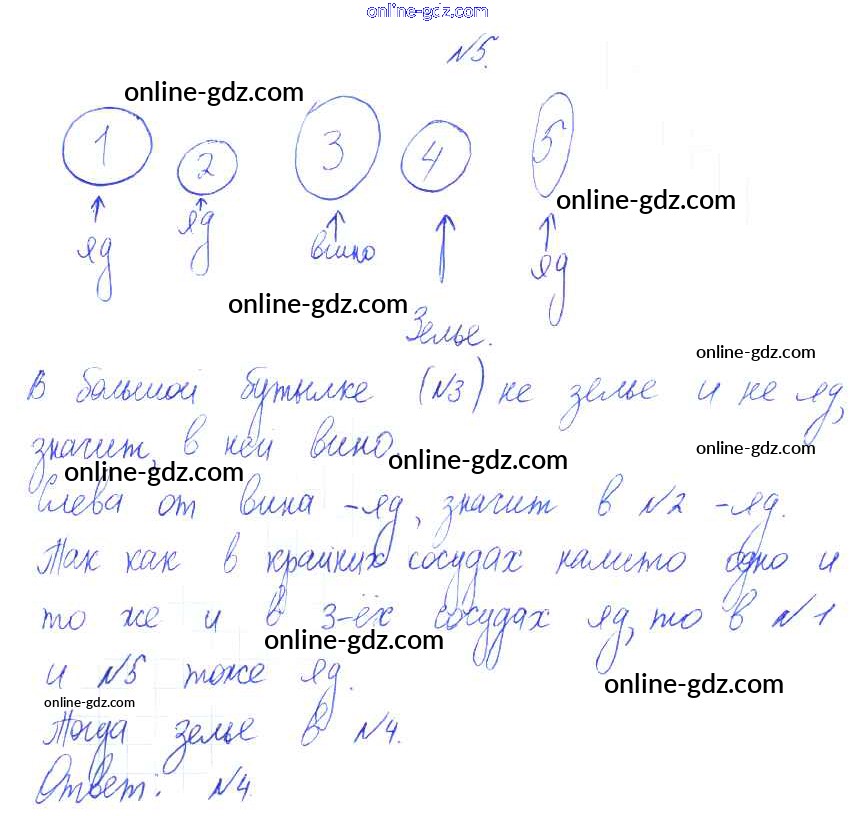 online-gdz.com
№5.
online-gdz.com
1 2 3 4 5
online-gdz.com
яд яд вино яд
online-gdz.com
Зелье.
online-gdz.com
В большой бутылке (№3) не зелье и не яд,
значит, в ней вино.
online-gdz.com
online-gdz.com
online-gdz.com
Слева от вина - яд, значит в №2 - яд.
Так как в крайних сосудах налито одно и
то же и в 3-ёх сосудах яд, то в №1
online-gdz.com
и №5 тоже яд.
online-gdz.com
online-gdz.com
Тогда зелье в №4.
Ответ: №4